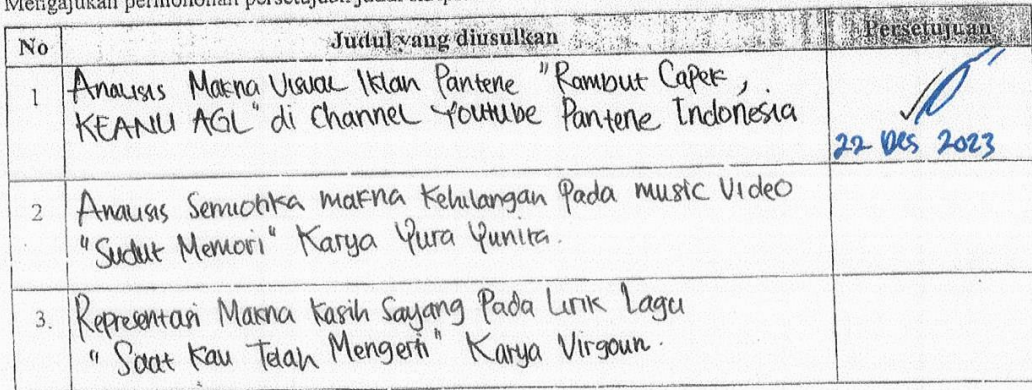 Mengajukan permohonan persetujuan judul
No Judul yang diusulkan Persetujuan
1 Analisis Makna Visual Iklan Pantene "Rambut Capek,
KEANU AGL" di Channel Youtube Pantene Indonesia
22 Des 2023
2 Analisis Semiotika makna Kehilangan Pada music Video
"Sudut Memori" Karya Yura Yunita.
3. Representasi Makna Kasih Sayang Pada Lirik Lagu
"Saat Kau Telah Mengerti" Karya Virgoun.